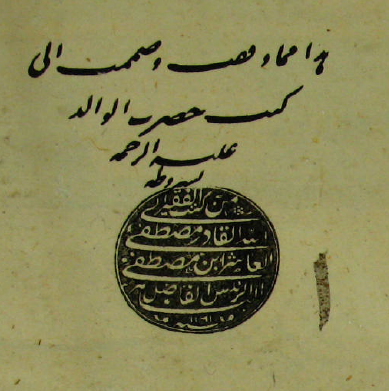 هذا مما وقف وضمت الى
كتب حضرت الوالد
عليه الرحمة
بشروطه
من كتب الفقير الى
الله القادر مصطفى
العاشر ابن مصطفى
الرئيس الفاضل